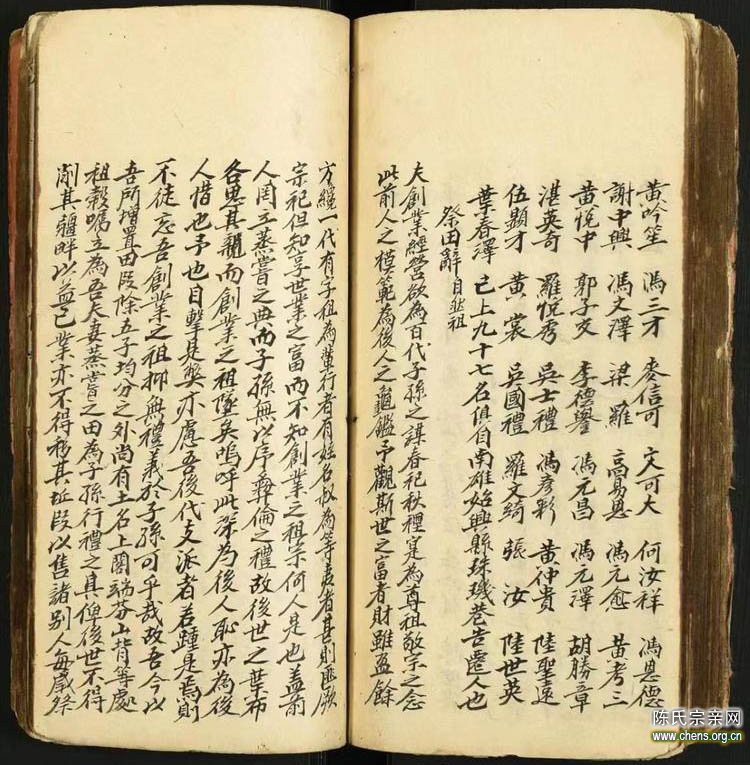 黄吟笙 馮三才 麥信可 文可大 何汝祥 馮恩德
謝中興 馮文澤 梁羅 高易恩 馮元愈 黄考三
黄悅中 郭子交 李德譽 馮元昌 馮元澤 胡勝章
湛英奇 羅悅秀 吳士禮 馮彦彩 黄仲貴 陸聖遠
伍顯才 黄裳 吳國禮 羅文綺 張汝 陸世英
葉春澤 已上九十七名俱自南雄始興縣珠璣巷告遷人也
祭田辭 自 祖
夫創業經營欲為百代子孫之謀春祀秋禋寔為尊祖敬宗之念
此前人之模範為後人之龜鑑予觀斯世之富者財雖盈餘
方經一代有字祖為輩行者有姓名叔為等夷者甚則匪厥
宗祀但知享世業之富而不知創業之祖宗何人是也盖前
人罔立蒸嘗之典而子孫無以序彝倫之禮故後世之葉布
各思其親而創業之祖墜矣嗚呼此深為後人恥亦為後
人惜也予也目擊是獘亦慮吾後代支派者若踵是焉則
不徒忘吾創業之祖抑無禮義於子孫可乎哉故吾今以
吾所增置田段除五子均分之外尚有土名上蓢端芬山背等處
祖穀囑立為吾夫妻蒸嘗之田為子孫行禮之具俾後世不得
削其疆畔以益已業亦不得移其坵段以售諸别人每歲祭
陈氏宗亲网
www.chens.org.cn